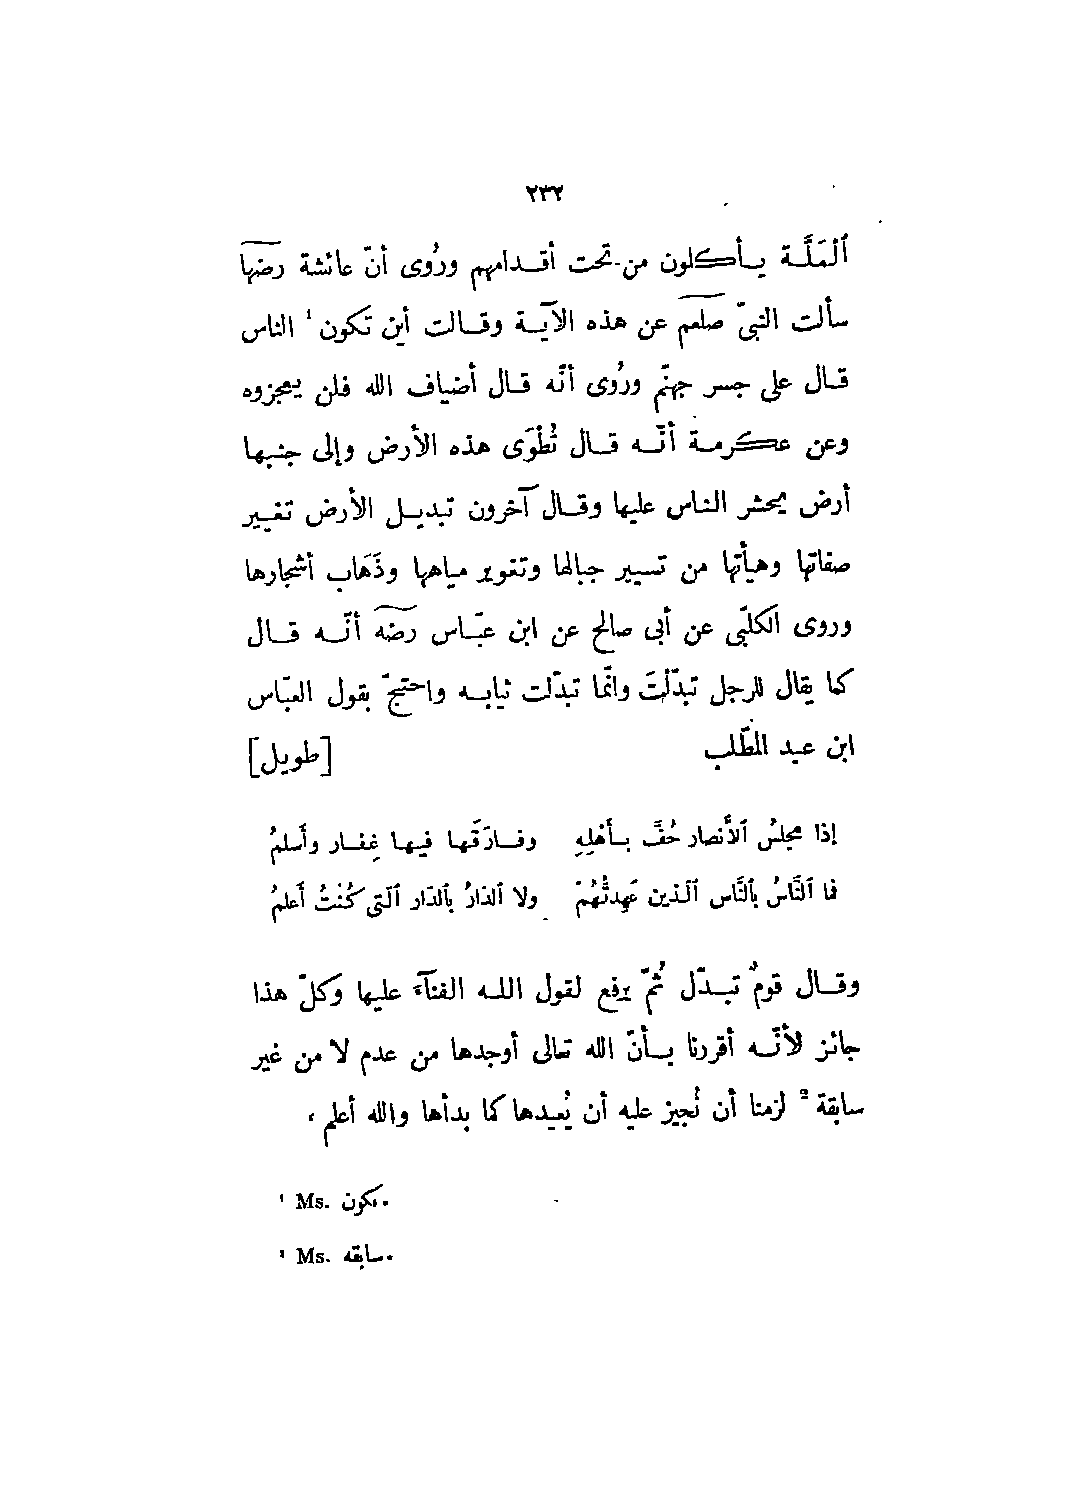 ٢٣٢
ٱلمَلَّـة يـأكلون من تحت أقـدامهم ورُوى أنّ عائشة رضها
سألت النبىّ صلعم عن هذه الآيـة وقـالت أين تكون ¹ الناس
قـال على جسر جهنّم ورُوى أنّه قـال أضياف الله فلن يعجزوه
وعن عكرمـة أنّـه قـال تُطْوَى هذه الأرض وإلى جنبها
أرض يحشر الناس عليها وقـال آخرون تبديـل الأرض تغيير
صفاتها وهيأتها من تسيير جبالها وتغوير مياهها وذَهَاب أشجارها
وروى الكلبّى عن أبى صالح عن ابن عبّاس رضه أنّـه قـال
كما يقال للرجل تبدّلتَ وانّما تبدّلت ثيابـه واحتجّ بقول العبّاس
ابن عبد المطّلب [طويل]
إذا مجلسُ ٱلأنصار حُفَّ بـأَهْلِهِ وفـارَقَها فيها غِفـار وأَسلمُ
فما ٱلنَّاسُ بٱلنَّاس ٱلّذين عَهِدتُّهُمْ ولا ٱلدّارُ بٱلدّار ٱلّتى كُنْتُ أعلمُ
وقـال قومٌ تبـدّل ثُمّ يرفع لقول اللـه الفنآء عليها وكلّ هذا
جائز لأنّـه أقررنا بـأنّ الله تعالى أوجدها من عدم لا من غير
سابقة ² لزمنا أن نُجيز عليه أن يُعيدها كما بدأها والله أعلم ،
¹ Ms. مكون.
² Ms. سابقه.